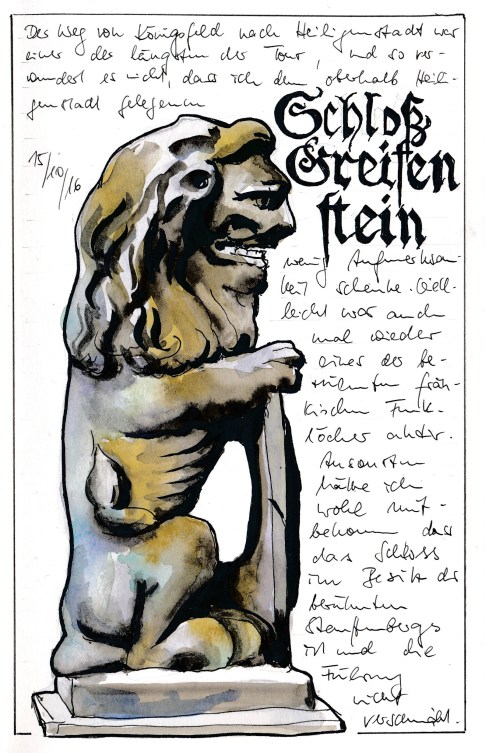 Der Weg von Königsfeld nach Heiligenstadt war
einer der längsten der Tour, und so ver-
wundert es nicht, dass ich dem oberhalb Heili-
genstadt gelegenen
15/10/16
Schloß
Greifen
stein
wenig Aufmerksam-
keit schenke. Viel-
leicht war auch
mal wieder
eines der be-
rühmten frän-
kischen Funk-
löcher aktiv.
Ansonsten
hätte ich
wohl mit-
bekomm dass
das Schloss
im Besitz der
berühmten
Stauffenbergs
ist und die
Führung
nicht
verschmäht.